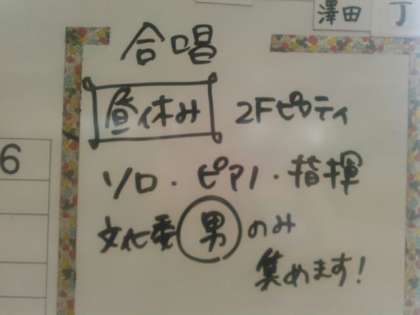 澤田
合唱
昼休み 2Fピロティ
6
ソロ・ピアノ・指揮
文化委男のみ
集めます!